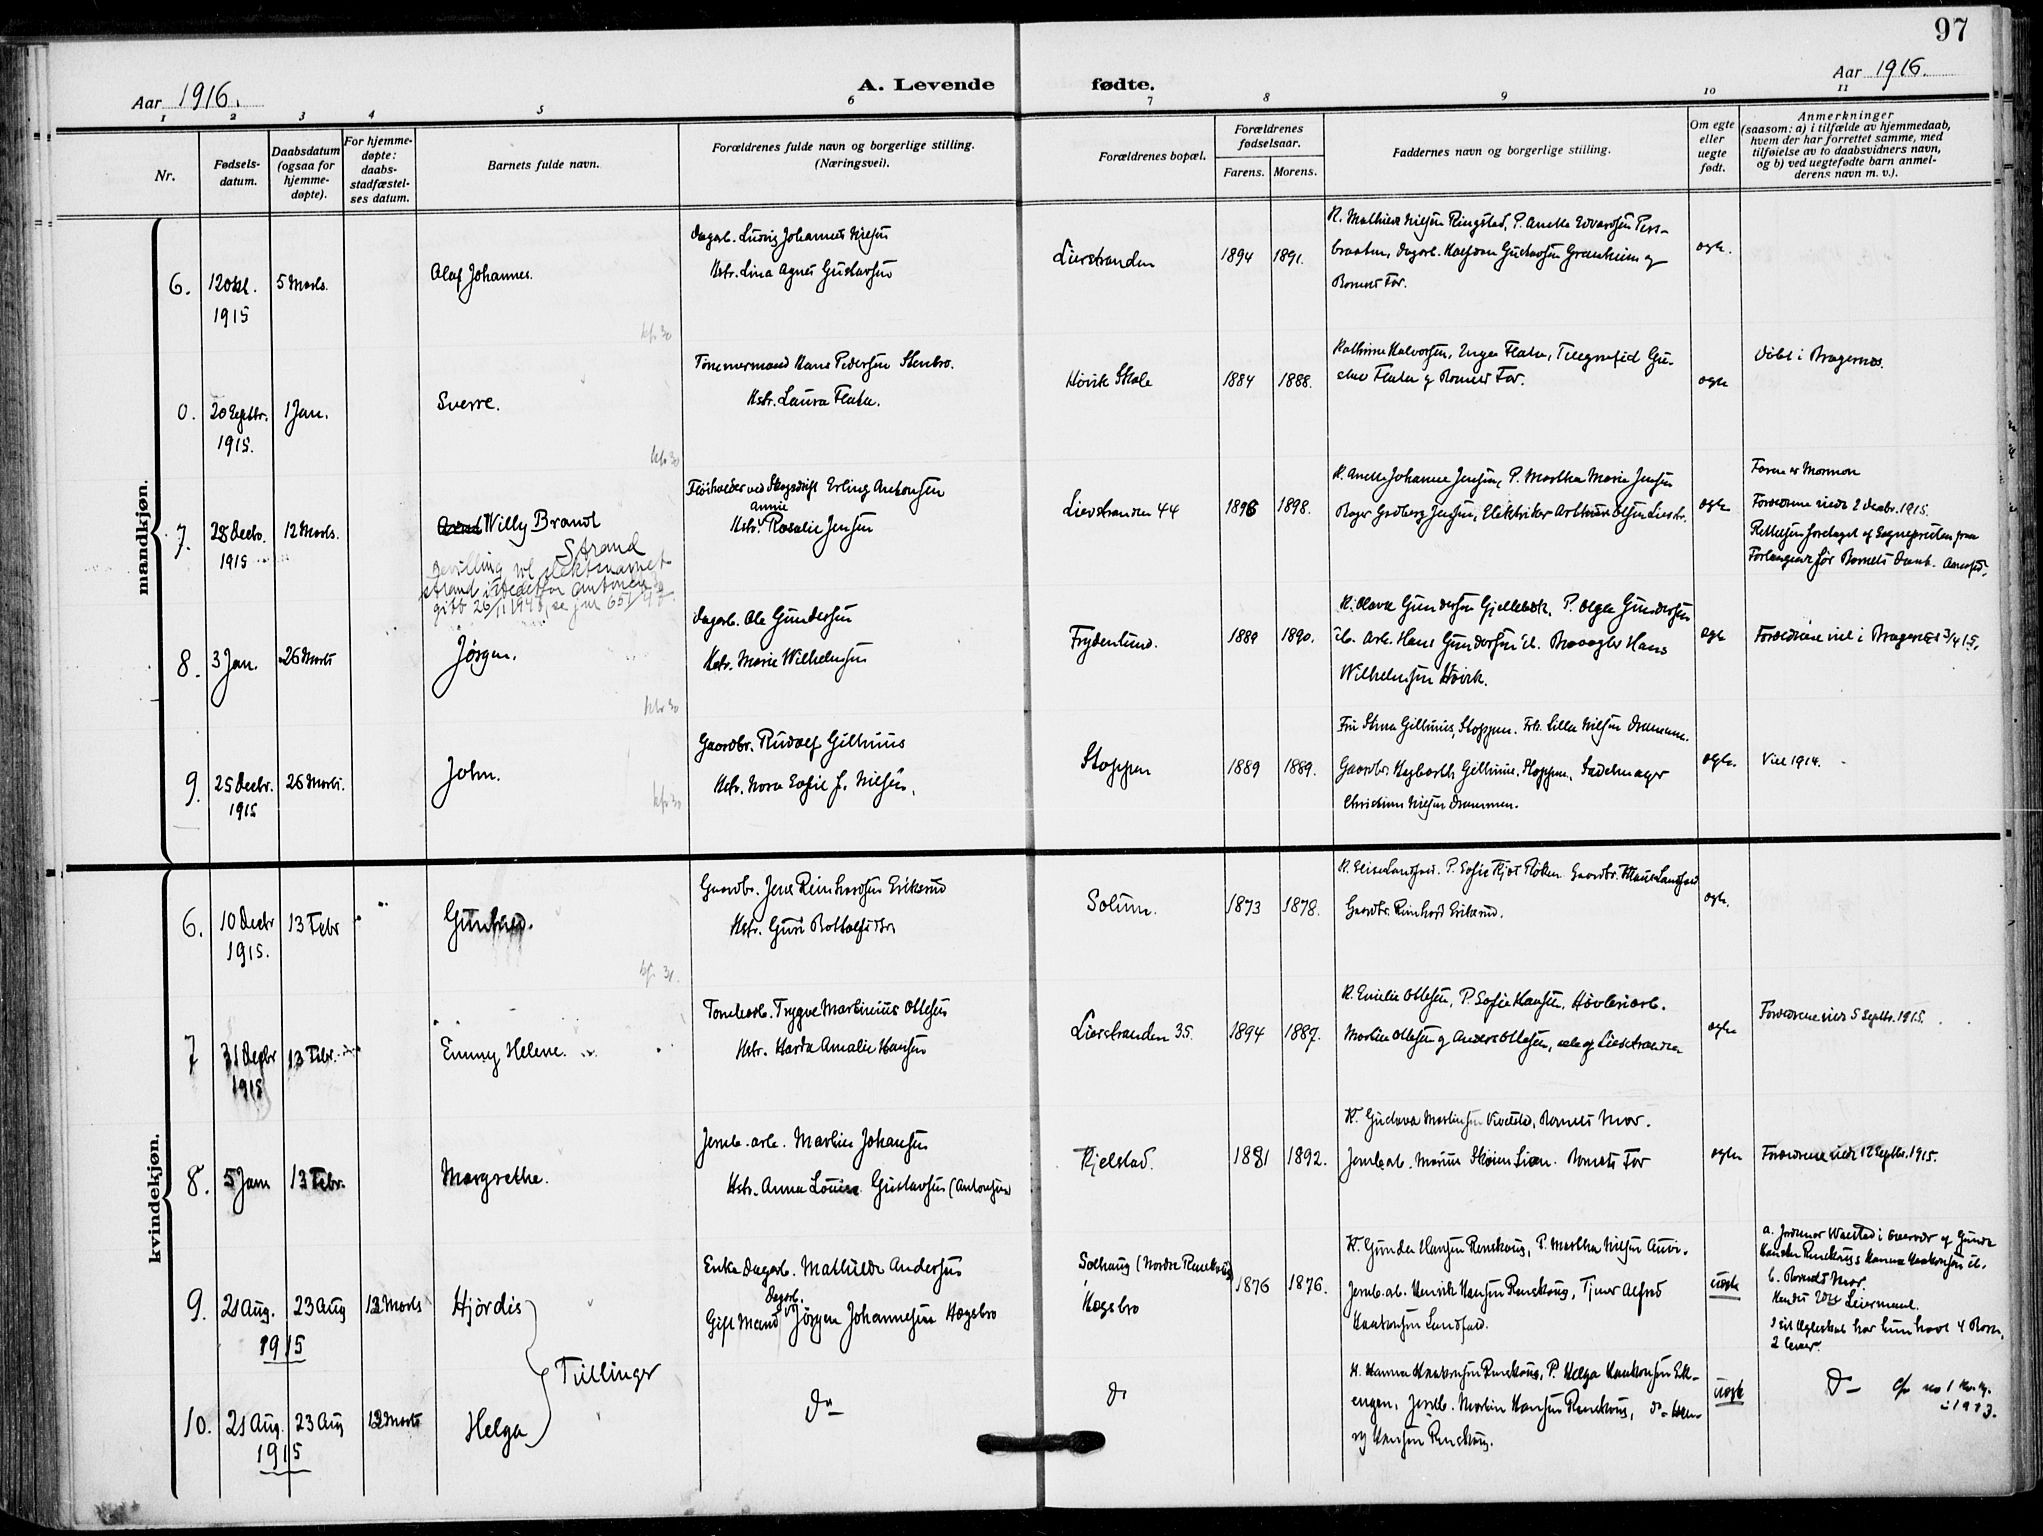 97
Aar 1916.
A. Levende fødte.
Aar 1916.
1 2 3 4 5 6 7 8 9 10 11
Nr.
Fødsels-
datum.
Daabsdatum
(ogsaa for
hjemme-
døpte).
For hjemme-
døpte:
daabs-
stadfæstel-
ses datum.
Barnets fulde navn.
Forældrenes fulde navn og borgerlige stilling.
(Næringsvei).
Forældrenes bopæl.
Forældrenes
fødselsaar.
Farens. Morens.
Faddernes navn og borgerlige stilling.
Om egte
eller
uegte
født.
Anmerkninger
(saasom: a) i tilfælde av hjemmedaab,
hvem der har forrettet samme, med
tilføielse av to daabsvidners navn,
og b) ved uegtefødte barn anmel-
derens navn m. v.).
mandkjøn.
6.
12 Okt.
1915
5 Marts.
Olaf Johannes.
Dagarb. Ludvig Johannes Nilsen
Hstr. Lina Agnes Gustavsen
Lierstranden
1894 1891.
K. Mathilde Nilsen Ringstad, P. Anette Edvardsen
Dagarb. Halfdan Gustavsen
Barnets Far.
egte.
0.
20 Septbr.
1915.
1 Jan.
Sverre.
Tømmermand Hans Pedersen Stenbro.
Hstr. Laura Flata.
Høvik Skole
1884 1888.
Kathrine Halvorsen, Inga Flata, Telegrafist Gu-
stav Flata og Barnets Far.
egte
Døbt i Bragernes.
7.
28 Decbr.
1915
12 Marts.
Willy Brandt
Strand
Bevilling til slektsnavnet
Strand istedetfor Antonsen
gitt 26/1 1948, se jnr 65/48.
Fløtholder ved Skogsdrift Erling Antonsen
Annie
Hstr. Rosalie Jensen
Lierstranden 44
1896 1898.
K. Anette Johanne Jensen, P. Martha Marie Jensen
Elektriker Arthur Olsen Lierstr.
egte
Faren er Mormon
Forældrene viede 2 Decbr. 1915.
Rettelsen foretaget af Sognepresten paa
Forlangende før Barnets Daab.
8.
3 Jan.
26 Marts
Jørgen.
Dagarb. Ole Gundersen
Hstr. Marie Wilhelmsen
Frydenlund.
1889 1890.
K. Olava Gundersen Gjellebæk, P. Olga Gundersen
ib. Arb. Hans Gundersen ib. Hans
Wilhelmsen Høvik.
egte
Forældrene viet i Bragernes 3/4 15.
9.
25 Decbr.
1915
26 Marts.
John.
Gaardbr. Rudolf Gilhuus
Hstr. Nora Sofie J. Nilsen.
Stoppen
1889 1889.
Fru Stina Gilhuus, Stoppen. Frk. Lilla Nilsen Drammen.
Gaardbr. Hagbarth Gilhuus, Stoppen, Sadelmager
Christian Nilsen Drammen.
egte.
Viet 1914.
kvindekjøn.
6.
10 Decbr
1915.
13 Febr
Gaardbr. Jens Reinhardsen Eriksrud
Hstr. Guri
Solum.
1873 1878.
Gaardbr. Reinhard Eriksrud.
egte.
7
31 Decbr
1915
13 Febr.
Emmy Helene.
Tomtearb. Trygve Martinius Ottesen
Hstr. Harda Amalie Hansen
Lierstranden 35.
1894 1887.
K. Emilie Ottesen, P. Sofie Hansen, Høvleriarb.
Martin Ottesen og Anders Ottesen, alle af Lierstranden
egte
Forældrene viede 5 Septbr. 1915.
8.
5 Jan
13 Febr.
Margrethe.
Jernb. arb. Martin Johansen
Hstr. Anna Louise Gustavsen (Antonsen)
Kjelstad.
1881 1892.
K. Gustava Martinsen Vivelstad, Barnets Mor.
Jernb. arb. Marius Skoien Lian. Barnets Far
egte
Forældrene viede 12 Septbr. 1915.
9.
21 Aug.
1915
23 Aug
12 Marts
Hjørdis
Enke Dagarb. Mathilde Andersen
Dagarb.
Gift Mand Jørgen Johannesen Hægsbro
Solhaug (Nordre Renskoug)
Hægsbro
1876 1876.
K. Gunda Hansen Renskoug, P. Martha Nilsen
Jernb. arb. Henrik Hansen Renskoug, Tjener Alfred
Haakonsen Landfald.
uegte
a. Jordmor Waestad i Overvær af Gunda
Hansen Renskoug & Hanna Haakonsen ib.
b. Barnets Mor
I sit Egteskab har hun havt 4 Barn,
2 lever.
Tvillinger
10.
21 Aug.
1915
23 Aug
12 Marts
Helga
Do
Do
K. Hanna Haakonsen Renskoug, P. Helga Haakonsen Ek-
engen, Jernb. Martin Hansen Renskoug,
Hansen Renskoug.
uegte
Do
cfr no 1 Kv. Kj.
i 1913.